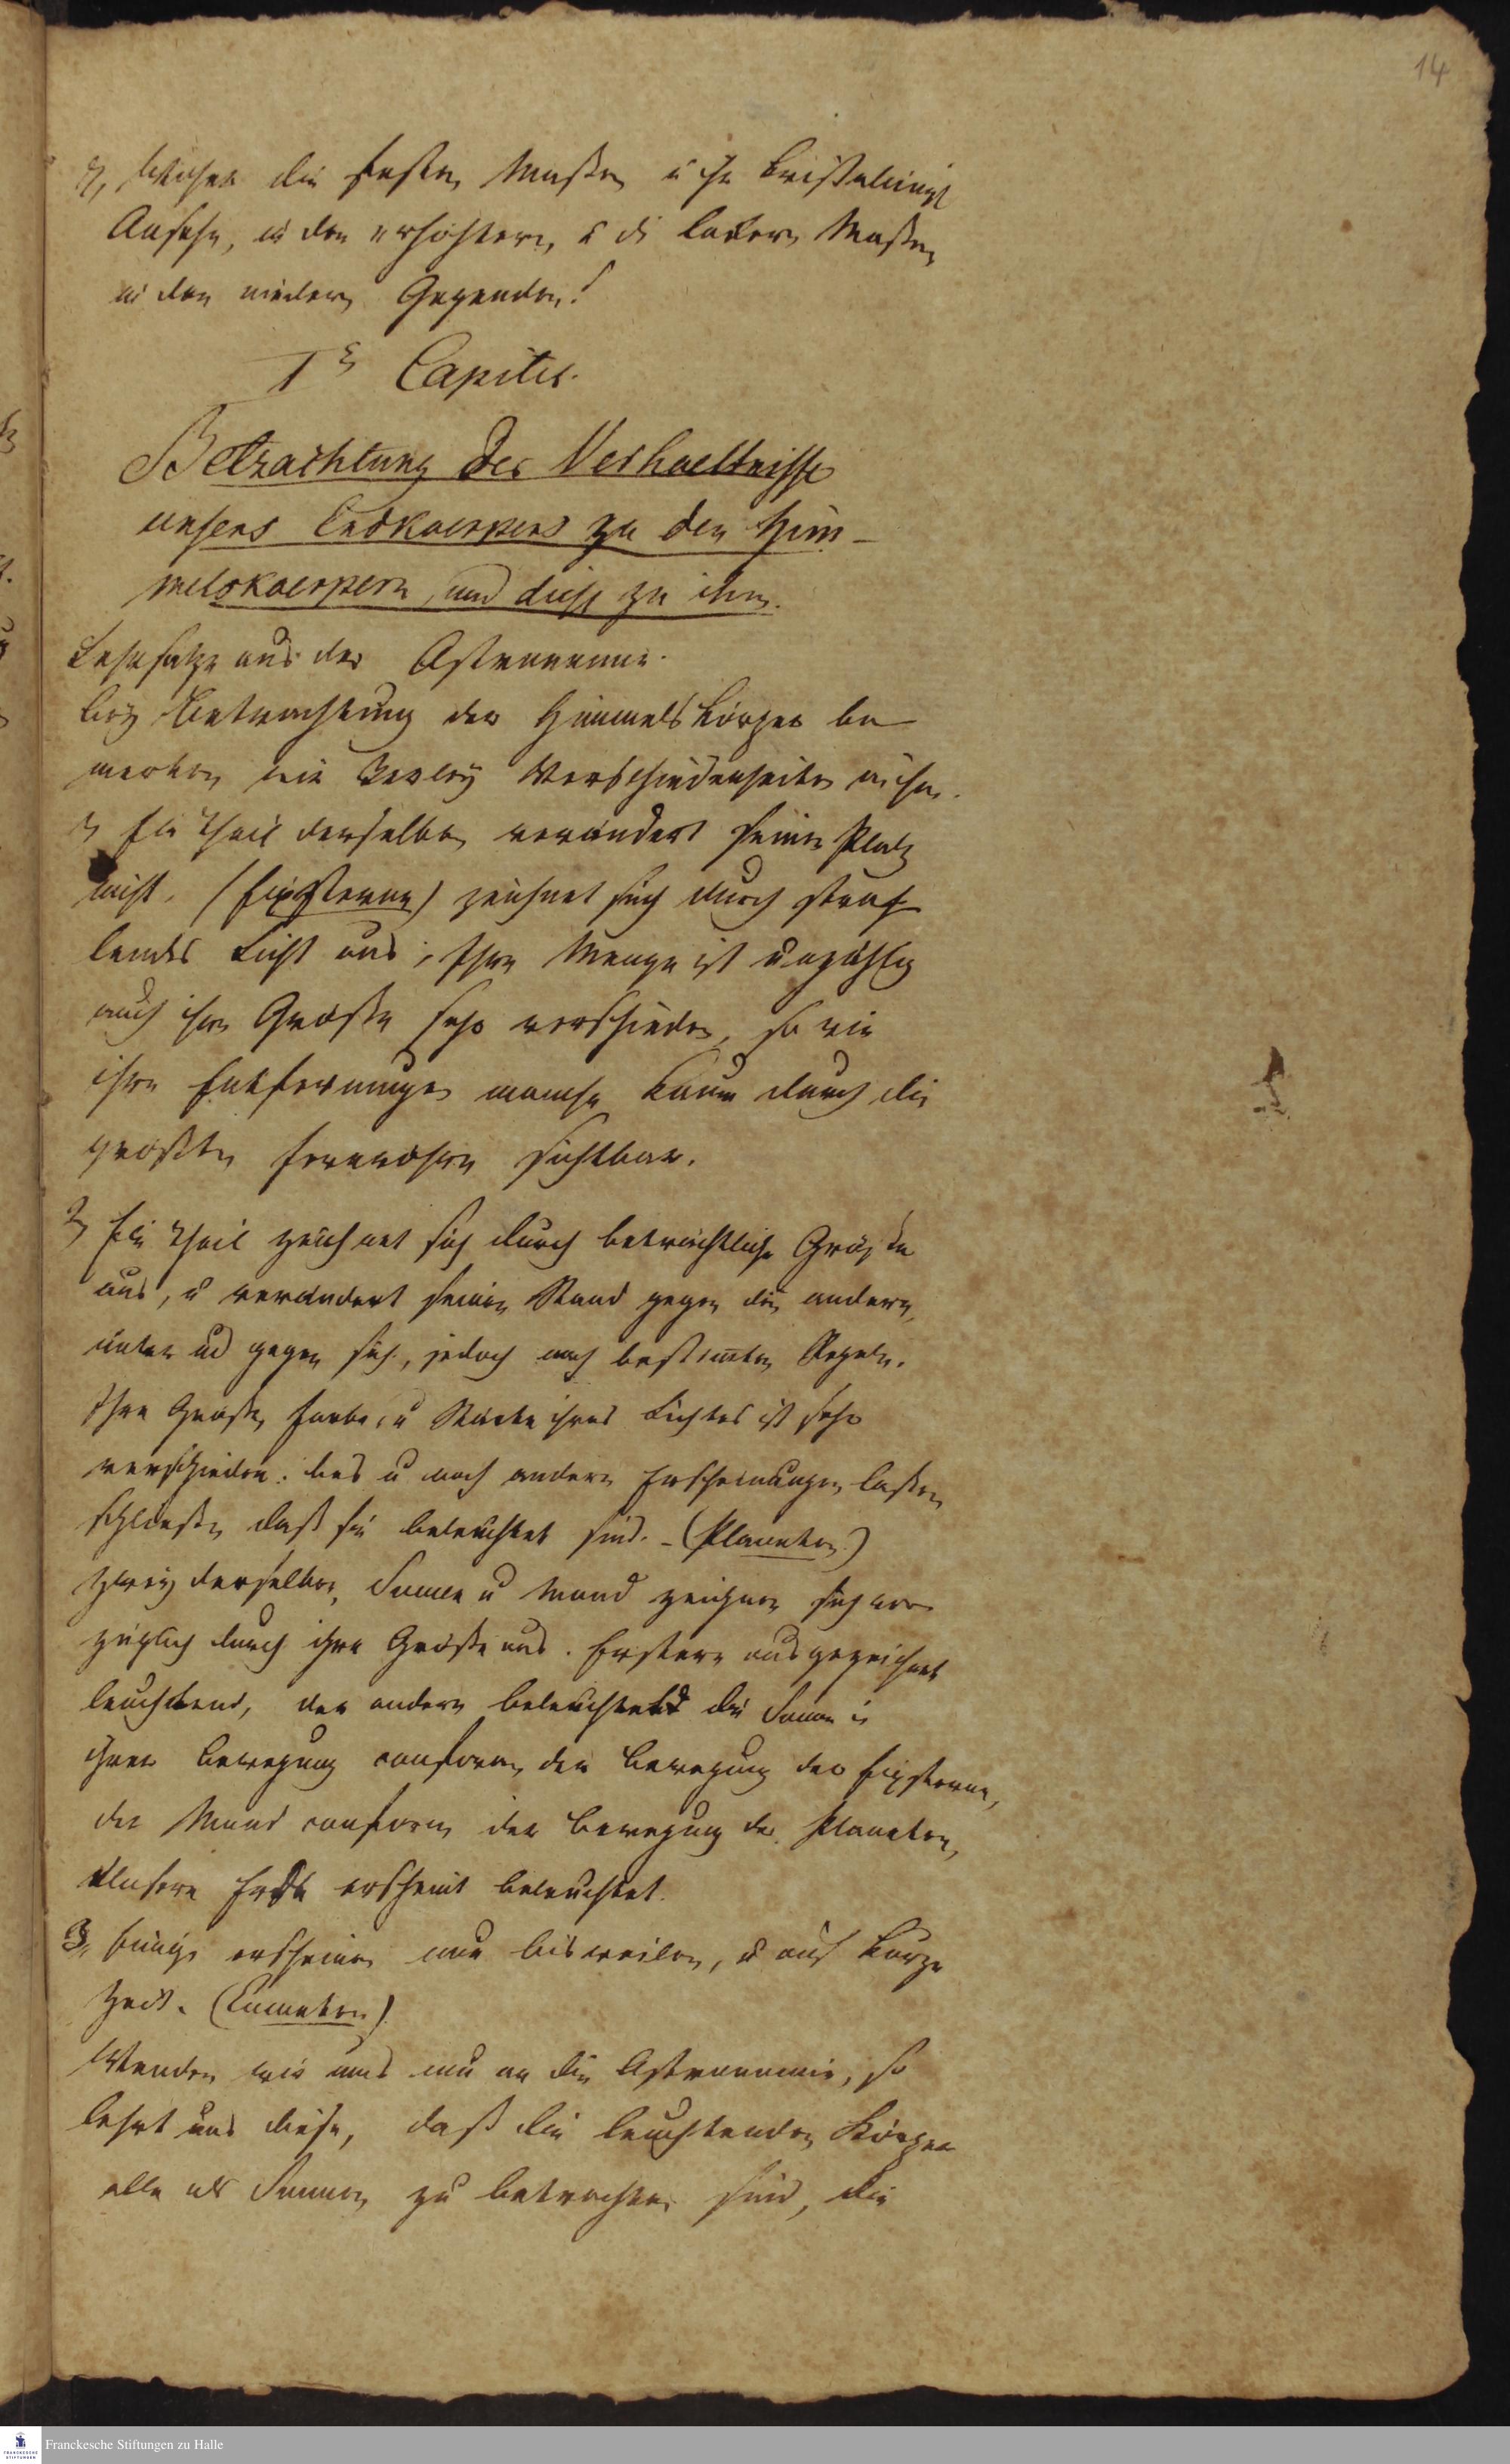 14
Woher die festen Maßen u ihr Cristallinisch
Ansehn, in den erhöhtern, u die lockern Maßen
in den niedern Gegenden!
1s Capitel.
Betrachtung der Verhaeltnisse
unsers Erdkoerpers zu den Him-
melskoerpern, und diese zu ihm.
Lehrsätze aus der Astronomie.
bey Betrachtung der Himmelskörper be
merken wir Verschiedenheiten
1, Ein Theil derselben verändert seinen Platz
nicht. (Fixsterne) zeichnet sich durch strah
lendes Licht aus, Ihre Menge ist unzählig
auch ihre Größe sehr verschieden, so wie
ihre Entfernungen manche kaum durch die
größten Fernröhre sichtbar.
2, Ein Theil zeichnet sich durch beträchtliche Größe
aus, u verändert seinen Stand gegen die andern,
unter und gegen sich, jedoch nach bestimten Regeln.
Ihre Größe, Farbe, u Stärke ihres Lichtes ist sehr
verschieden. Dies u noch andere Erscheinungen laßen
schließen daß sie beleuchtet sind. - (Planeten)
Zwey derselben, Sonne u Mond zeichnen sich vor
züglich durch ihre Größe aus. Erstere ausgezeichnet
leuchtend, der andere beleuchtet die Sonne in
ihrer Bewegung conform der Bewegung der Fixsterne,
der Mond conform der Bewegung der Planeten,
Unsere Erde erscheint beleuchtet.
3, Einige erscheinen nur bisweilen, u auf kurze
Zeit. (Cometen)
Wenden wir uns nun an die Astronomie, so
lehrt uns diese, daß die leuchtenden Körper
alle als Sonnen zu betrachten sind, die
Franckesche Stiftungen zu Halle
FRANCKESCHE
STIFTUNGEN